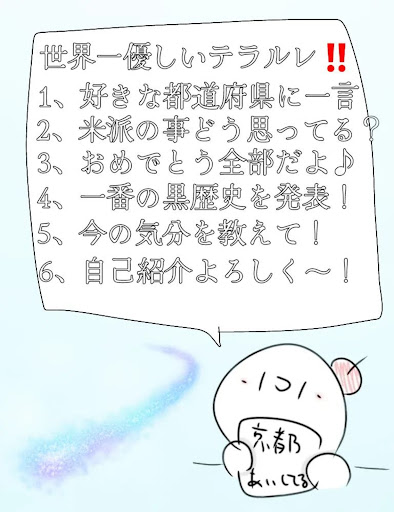 世界一優しいテラルレ‼️
1、好きな都道府県に一言
2、米派の事どう思ってる？
3、おめでとう全部だよ♪
4、一番の黒歴史を発表！
5、今の気分を教えて！
6、自己紹介よろしく～！
京都
あいしてる